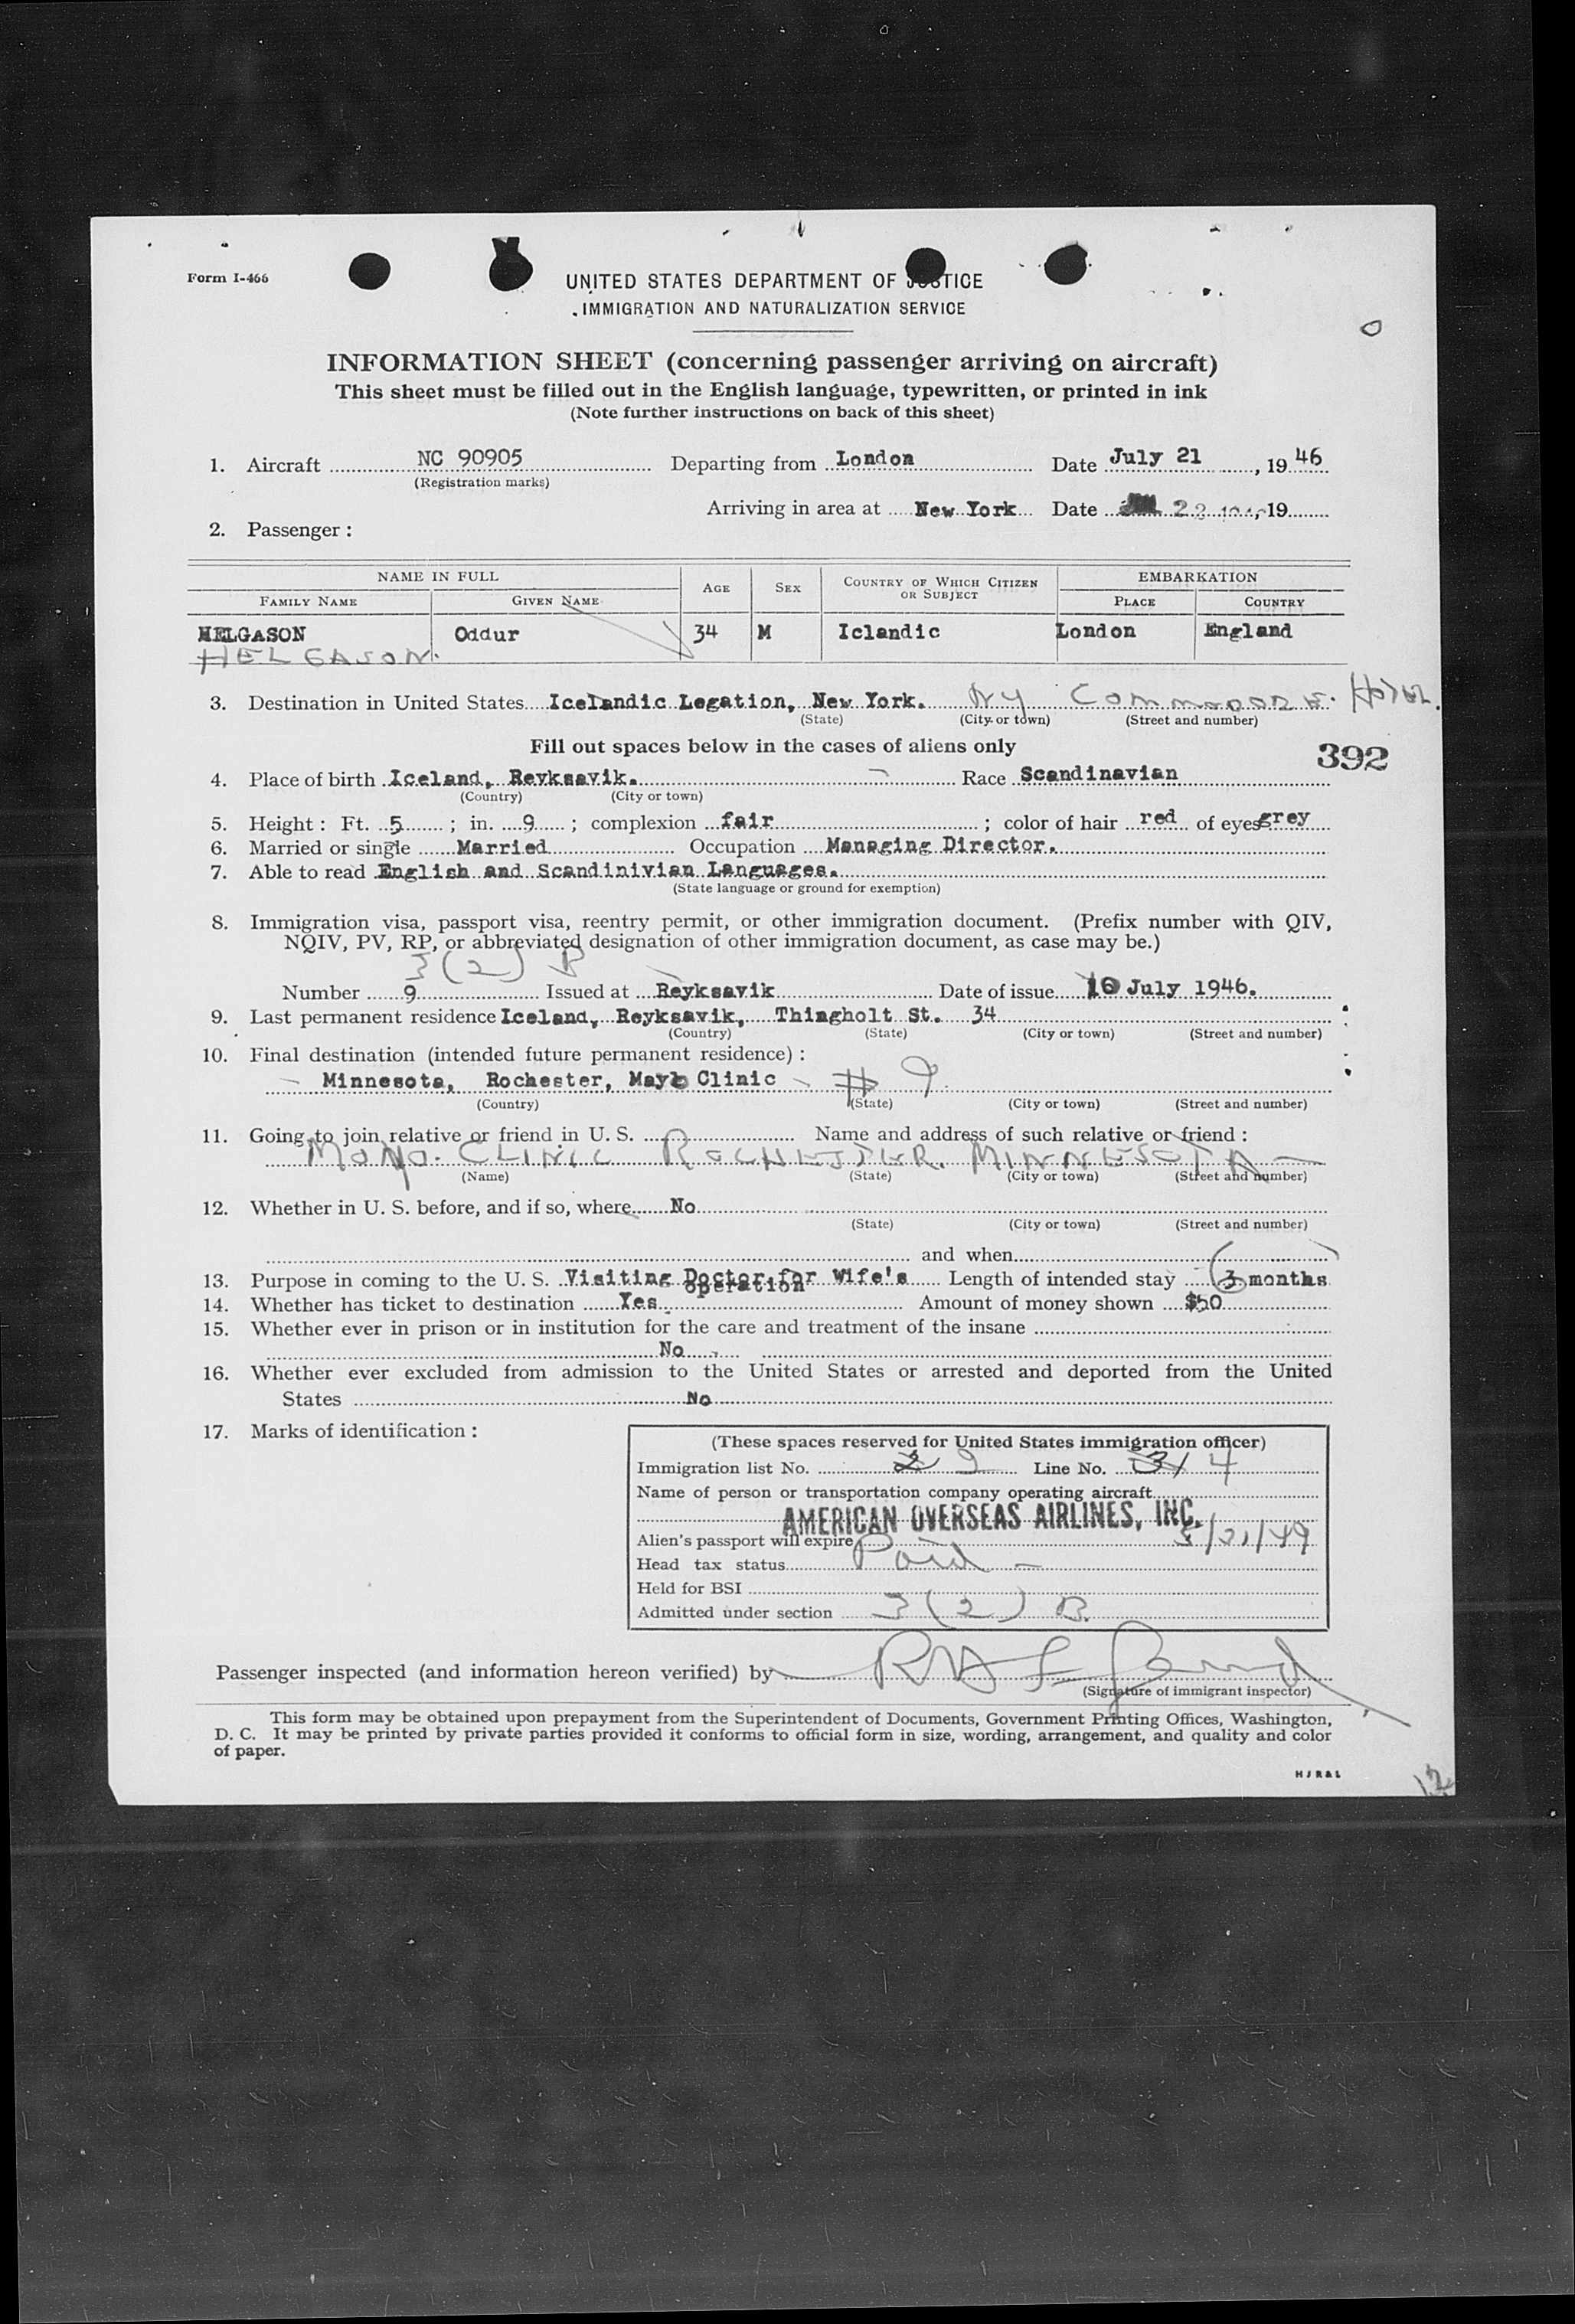 Form I-466
UNITED STATES DEPARTMENT OF JUSTICE
IMMIGRATION AND NATURALIZATION SERVICE
INFORMATION SHEET (concerning passenger arriving on aircraft)
This sheet must be filled out in the English language, typewritten, or printed in ink
(Note further instructions on back of this sheet)
1. Aircraft NC 90905 Departing from London Date July 21, 19 46
(Registration marks)
Arriving in area at New York Date 22 19
2. Passenger :
NAME IN FULL AGE SEX COUNTRY OF WHICH CITIZEN OR SUBJECT EMBARKATION
FAMILY NAME GIVEN NAME PLACE COUNTRY
HELGASON Oddur 34 M Iclandic London England
HELGASON.
3. Destination in United States Icelandic Legation, New York. NY Commodore Hotel.
(State) (City or town) (Street and number)
Fill out spaces below in the cases of aliens only
392
4. Place of birth Iceland, Reyksavik. Race Scandinavian
(Country) (City or town)
5. Height : Ft. 5 ; in. 9 ; complexion fair ; color of hair red of eyes grey
6. Married or single Married Occupation Managing Director.
7. Able to read English and Scandinivian Languages.
(State language or ground for exemption)
8. Immigration visa, passport visa, reentry permit, or other immigration document. (Prefix number with QIV,
NQIV, PV, RP, or abbreviated designation of other immigration document, as case may be.)
3 (2) B
Number 9 Issued at Reyksavik Date of issue 16 July 1946.
9. Last permanent residence Iceland, Reyksavik, Thingholt St. 34
(Country) (State) (City or town) (Street and number)
10. Final destination (intended future permanent residence) :
Minnesota, Rochester, Mayo Clinic # 9
(Country) (State) (City or town) (Street and number)
11. Going to join relative or friend in U. S. Name and address of such relative or friend :
MAYO. CLINIC ROCHESTER. MINNESOTA
(Name) (State) (City or town) (Street and number)
12. Whether in U. S. before, and if so, where No
(State) (City or town) (Street and number)
and when
13. Purpose in coming to the U. S. Visiting Doctor for Wife's operation Length of intended stay 3 months
14. Whether has ticket to destination Yes Amount of money shown $50
15. Whether ever in prison or in institution for the care and treatment of the insane
No
16. Whether ever excluded from admission to the United States or arrested and deported from the United
States No
17. Marks of identification :
(These spaces reserved for United States immigration officer)
Immigration list No. 2 2 Line No. 31 4
Name of person or transportation company operating aircraft
AMERICAN OVERSEAS AIRLINES, INC.
Alien's passport will expire 5/21/49
Head tax status Paid
Held for BSI
Admitted under section 3 (2) B.
Passenger inspected (and information hereon verified) by
(Signature of immigrant inspector)
This form may be obtained upon prepayment from the Superintendent of Documents, Government Printing Offices, Washington,
D. C. It may be printed by private parties provided it conforms to official form in size, wording, arrangement, and quality and color
of paper.
HJR&L
12